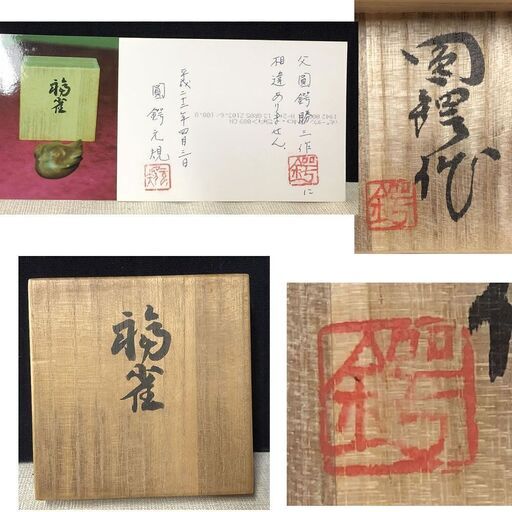 福雀
父 圓鍔勝三作に
相違ありません。
平成二十三年四月三日
圓鍔元規
圓鍔作
鍔
福雀
鍔